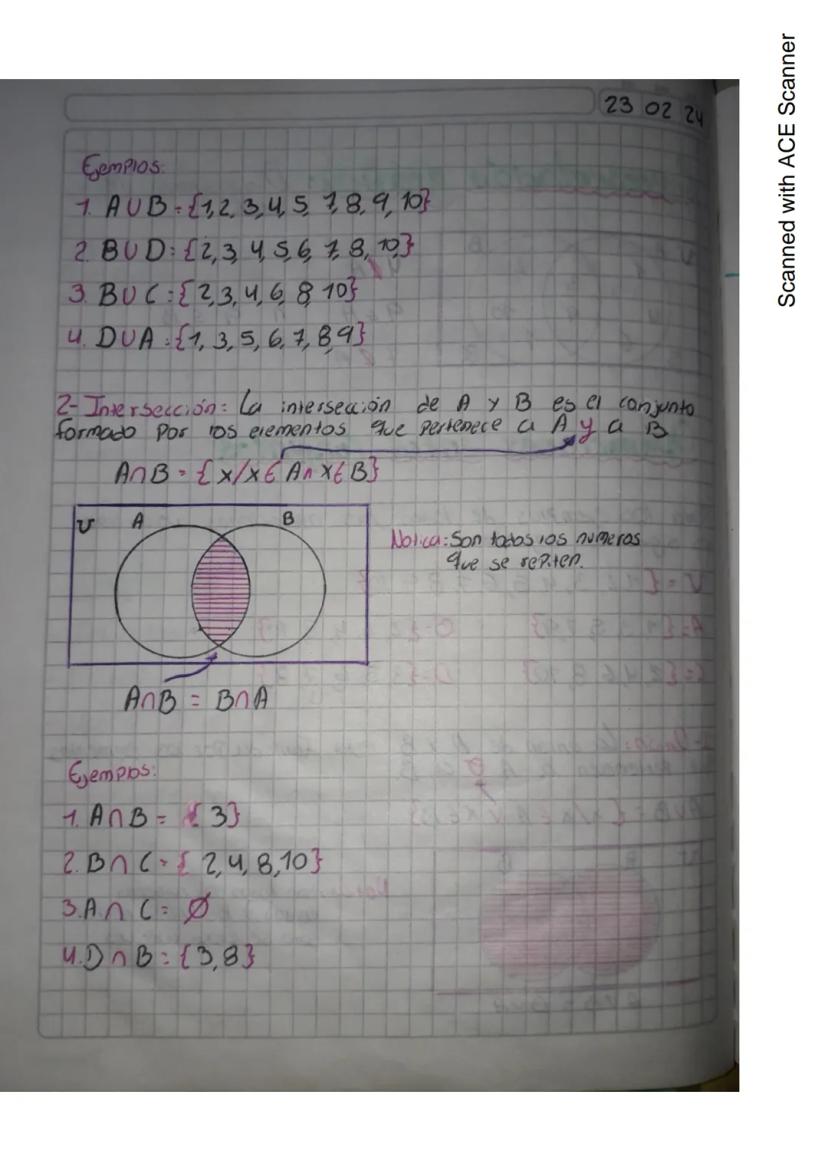 Scanned with ACE Scanner
23 02 24
Ejemplos:
1. A∪B={1,2,3,4,5,7,8,9,10}
2. B∪D:{2,3,4,5,6,7,8,10}
3. B∪C:{2,3,4,6,8,10}
4. D∪A:{1,3,5,6,7,8,9}
2- Intersección: La intersección de A y B es el conjunto
formado por los elementos que pertenece a A y a B
A∩B={x/x∈A∩x∈B}
U A B
Notica: Son todos los numeros
que se repiten.
A∩B = B∩A
Ejemplos:
1. A∩B = {3}
2. B∩C = {2,4,8,10}
3. A∩C = Ø
4. D∩B = {3,8}